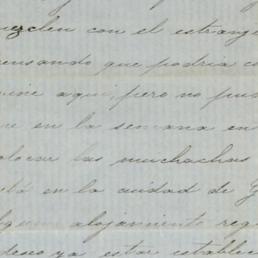 con el extranje
pensando que podria co
aqui, pero no pu
en la semana en
colocar las muchachas
está en la cuidad de
algun alojamiento reg
deseo ya estar estable